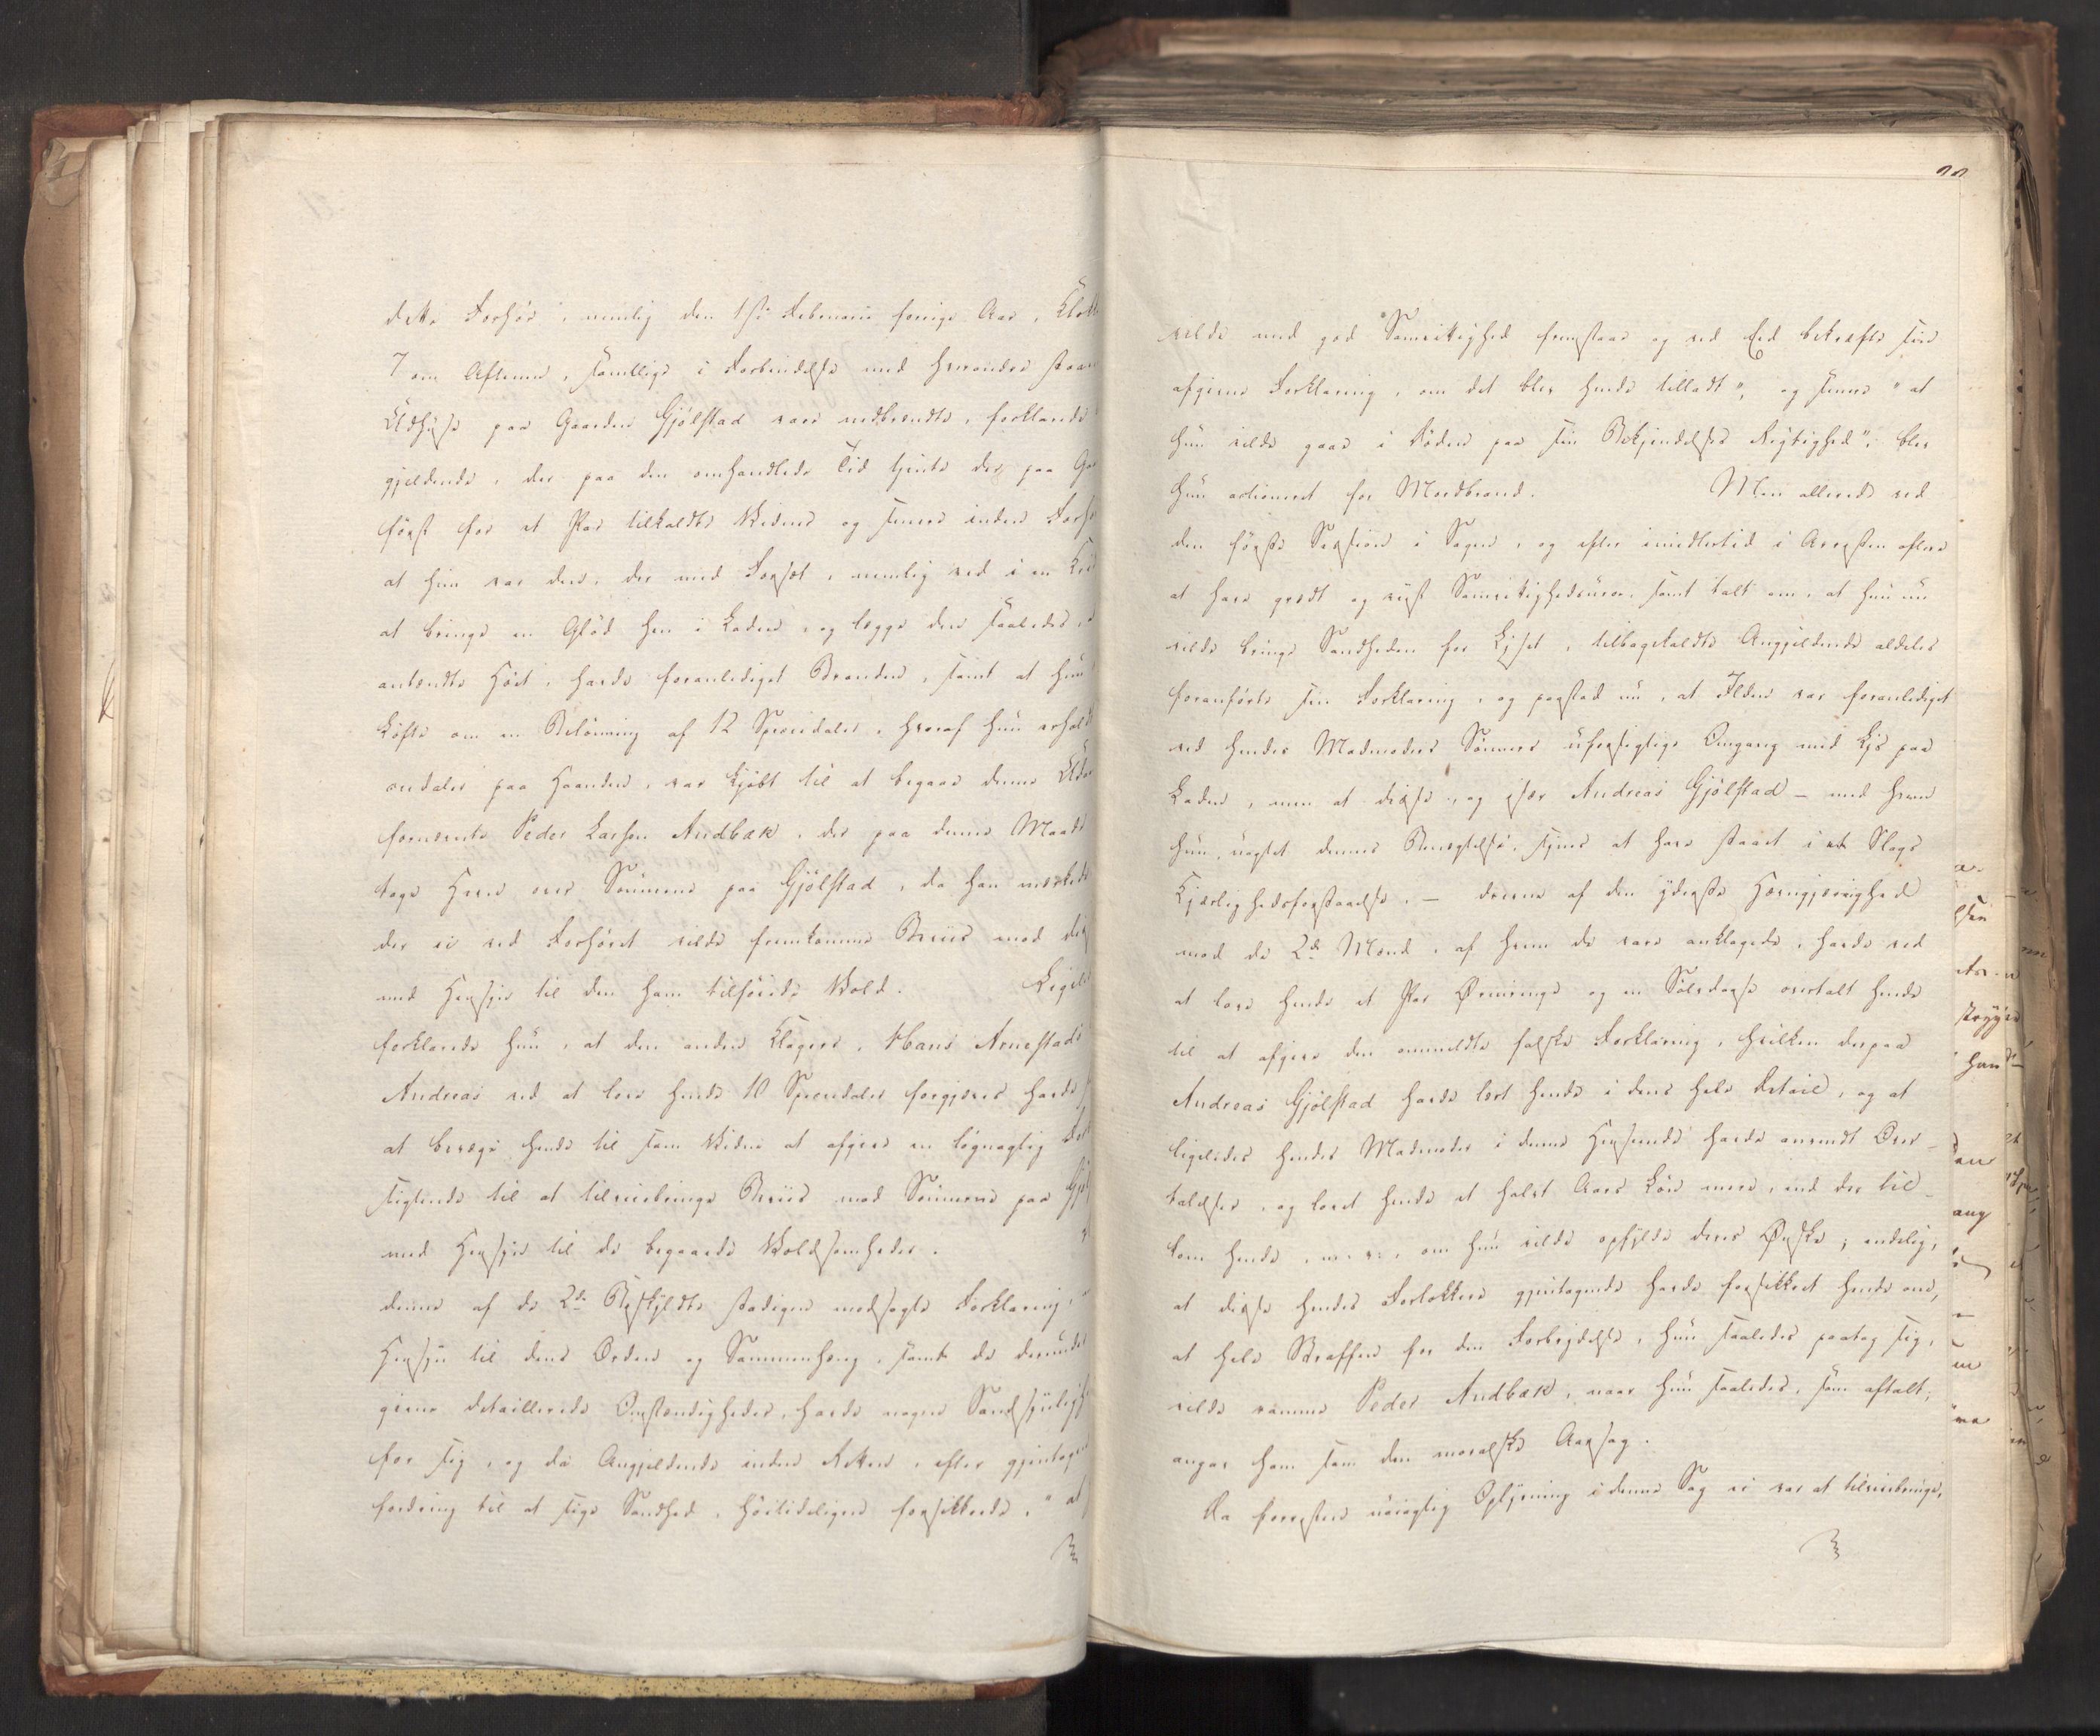 dette Forhör, nemlig den 1ste Februarii forrige Aar, Klok
7 om Aftenen, samtlige i Forbindelse med hverandre staae
Udhuse paa Gaarden Gjölstad vare nedbrændte, forklarede
gjeldende, der paa den omhandlede Tid tjente der paa Ga
först for et Par tilkaldte Vidner og senere inden Forh
at hun var den, der med Forsæt, nemlig ved i en
at bringe en Glöd hen i Laden, og lægge den saaledes, 
antændte Höet, havde foranlediget Branden, samt at hun
Löfte om en Belönning af 12 Speciedaler, hvoraf hun erholdt
ciedaler paa Haanden, var kjöbt til at begaae denne Udaa
fornævnte Peder Larsen Andbæk, der paa denne Maade
tage Hevn over Sönnerne paa Gjölstad, da han mærkede
der ei ved Forhöret vilde fremkomme Beviis mod dis
med Hensyn til den ham tilföiede Vold. Ligele
forklarede hun, at den anden Klagers, Hans Arnestads
Andreas ved at love hende 10 Speciedaler forgjæves havde
at bevæge hende til som Vidne at afgive en lögnagtig
sigtende til at tilveiebringe Beviis mod Sönnerne paa Gjöl
med Hensyn til de begaaede Voldsomheder.
denne af de 2de Beskyldte stadigen modsagte Forklaring,
Hensyn til dens Orden og Sammenhæng, samt de derunder
givne detaillerede Omstændigheder, havde megen Sandsynligh
for sig, og da Angjeldende inden Retten, efter gjentagen
fordring til at sige Sandhed, höitideligen forsikkrede, "at
22
vilde med god Samvittighed fremstaae og ved Eed bekræfte sin
afgivne Forklaring, om det blev hende tilladt", og senere "at
hun vilde gaae i Döden paa sin Bekjendelses Rigtighed", blev
hun actioneret for Mordbrand. Men allerede ved
den förste Session i Sagen, og efter imidlertid i Arresten oftere
at have grædt og viist Samvittighedsuroe, samt talt om, at hun nu
vilde bringe Sandheden for Lyset, tilbagekaldte Angjeldende aldeles
foranförte sin Forklaring, og paastod nu, at Ilden var foranlediget
ved hendes Madmoders Sönners uforsigtige Omgang med Lys paa
Laden, men at disse, og især Andreas Gjölstad – med hvem
hun, uagtet dennes Benegtelse, synes at have staaet i et Slags
Kjærlighedsforstaaelse, – drevne af den yderste Hævngjerrighed
mod de 2de Mænd, af hvem de vare anklagede, havde ved
at love hende et Par Örenringe og en Sölvdaase overtalt hende
til at afgive den anmeldte falske Forklaring, hvilken derpaa
Andreas Gjölstad havde lært hende i dens hele Detail, og at
ligeledes hendes Madmoder i denne Henseende havde anvendt Over-
talelser, og lovet hende et halvt Aars Lön mere, end der til-
kom hende, om hun vilde opfylde deres Önske; endelig,
at disse hendes Forlokkere gjentagende havde forsikkret hende om,
at hele Straffen for den Forbrydelse, hun saaledes paatog sig,
vilde ramme Peder Andbæk, naar hun saaledes, som aftalt,
angav ham som den moralske Aarsag.
Da forresten nöiagtig Oplysning i denne Sag ei var at tilveiebringe,